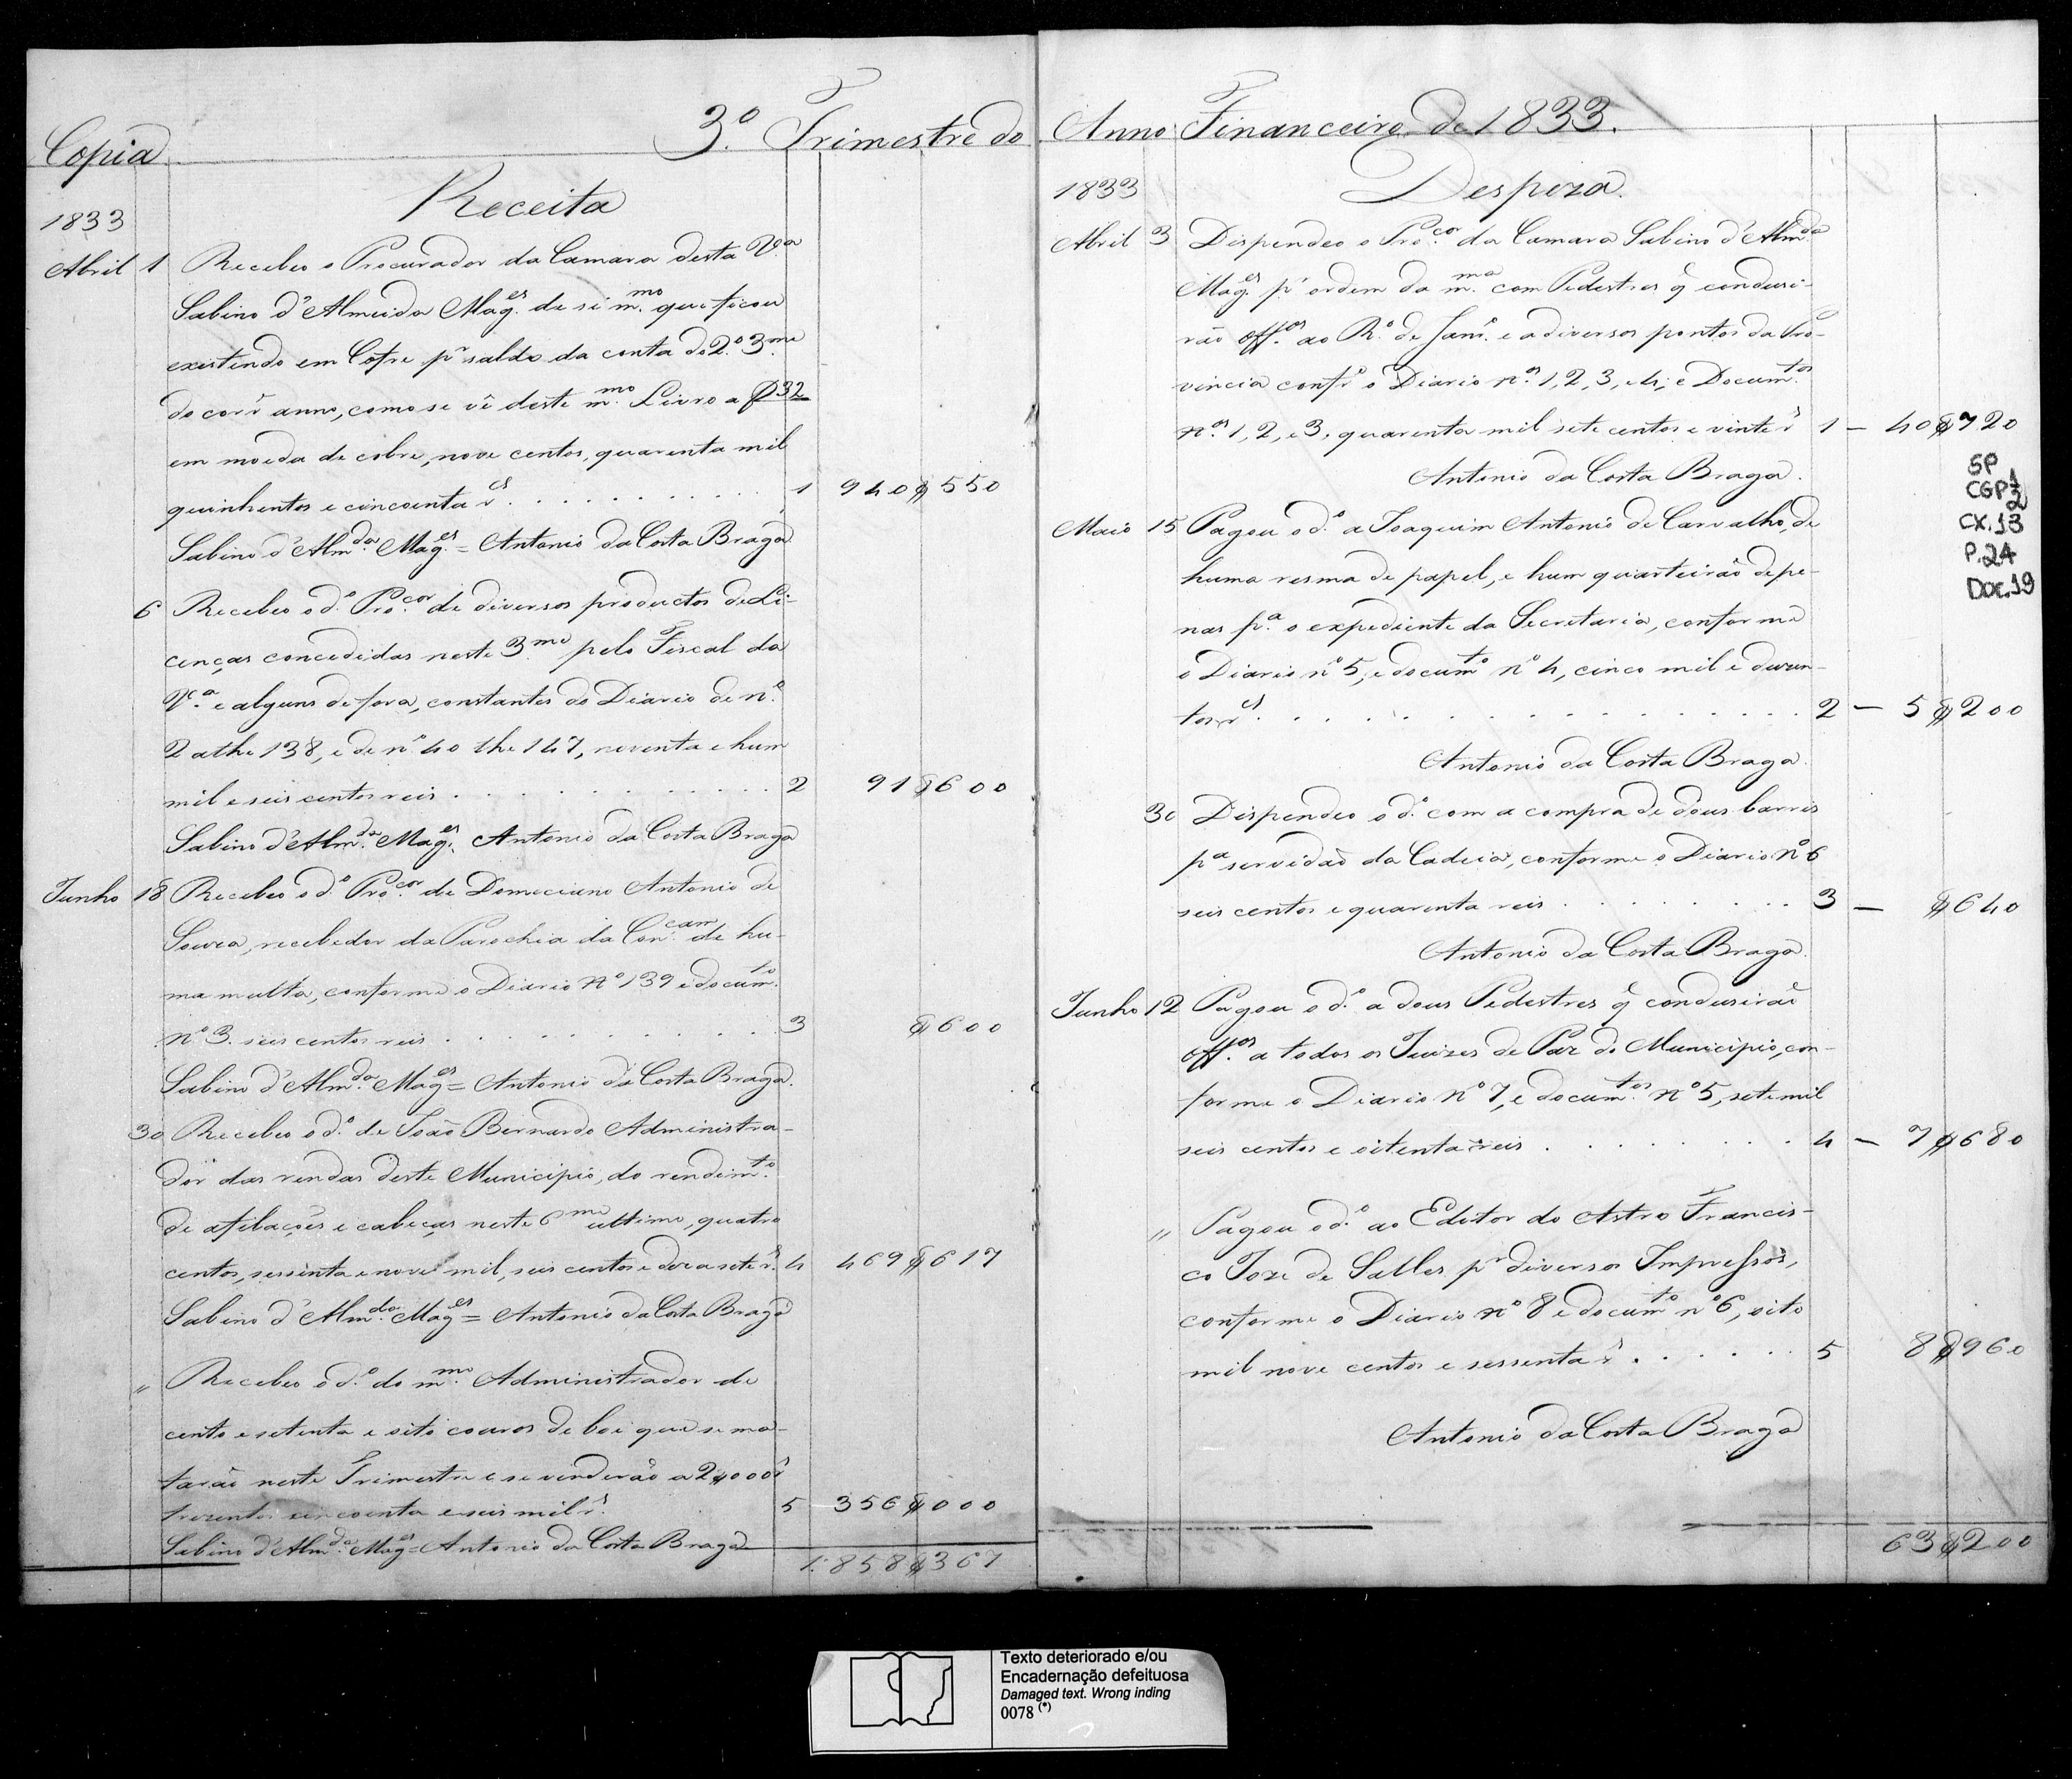 Copia
3.º Trimestre do
Receita
1833
Abril 1 Recebeo o Procurador da Camara desta V.ª
Sabino d'Almeida Mag.es de si m.mo que ficou
existindo em Cofre p.r saldo da conta do 2.º 3.me
do corr.e anno, como se vê deste m.mo Livro a f 32
em moeda de cobre, nove centos, quarenta mil
quinhentos e cincoenta r.es . . . . . . . . . . 1 940$550
Sabino d'Alm.da Mag.es = Antonio da Costa Braga
6 Recebeo o d.º Pro.cor de diversos productos de Li-
cenças concedidas neste 3.me pelo Fiscal da
V.ª e alguns de fora, constantes do Diario de n.º
2 athe 138, e de nº 40 the 147, noventa e hum
mil e seis centos reis . . . . . . . . . . . 2 91$600
Sabino d'Alm.da Mag.es Antonio da Costa Braga
Junho 18 Recebeo o d.º Pro.cor de Domeciano Antonio de
Souza, recebedor da Parochia da Con.cam de hu-
ma multa, conforme o Diario Nº 139 e docum.to
Nº 3. seis centos reis . . . . . . . . . . . 3 $600
Sabino d'Alm.da Mag.es = Antonio da Costa Braga.
30 Recebeo o d.º de João Bernardo Administra-
dor das rendas deste Municipio, do rendim.to
de afilações e cabeças neste 6.me ultimo, quatro
centos, sessenta e nove mil, seis centos e deza sete r.s 4 469$617
Sabino d'Alm.da Mag.es = Antonio da Costa Braga
" Recebeo o d.º do m.mo Administrador de
cento e setenta e oito couros de boi que se ma-
tarão neste Trimestre e se venderão a 2$000 r.s
trezentos cincoenta e seis mil r.s 5 356$000
Sabino d'Alm.da Mag.es = Antonio da Costa Braga
1:858$367
Anno Financeiro de 1833.
1833
Despeza.
Abril 3 Dispendeo o Pro.cor da Camara Sabino d'Alm.da
Mag.es p.r ordem da m.ma com Pedestres q̃ condusi-
rão off.os ao R.º de Jan.º e a diversos pontos da Pro-
vincia conf.e o Diario n.os 1, 2, 3, e 4; e Docum.tos
n.os 1, 2, e 3, quarenta mil sete centos e vinte r.s 1 — 40$720
Antonio da Costa Braga.
SP
CGP1
2
CX.13
P.24
Doc.19
Maio 15 Pagou o d.º a Joaquim Antonio de Carvalho, de
huma resma de papel, e hum quarteirão de pe-
nas p.ª o expediente da Secretaria, conforme
o Diario nº 5, e docum.to nº 4, cinco mil e duzen-
tos r.es . . . . . . . . . . . . . . . . 2 — 5$200
Antonio da Costa Braga.
30 Dispendeo o d.º com a compra de dous barris
p.ª servidão da Cadeia, conforme o Diario Nº 6
seis centos e quarenta reis . . . . . . . . 3 — $640
Antonio da Costa Braga.
Junho 12 Pagou o d.º a dous Pedestres q̃ condusirão
off.os a todos os Juizes de Paz do Municipio, con-
forme o Diario Nº 7, e docum.tos Nº 5, sete mil
seis centos e oitenta reis . . . . . . . . . 4 — 7$680
" Pagou o d.º ao Editor do Astro Francis-
co Joze de Salles p.r diversos Impressos,
conforme o Diario Nº 8 e docum.to nº 6, oito
mil nove centos e sessenta r.s . . . . . . 5 8$960
Antonio da Costa Braga
63$200
Texto deteriorado e/ou
Encadernação defeituosa
Damaged text. Wrong inding
0078 (*)